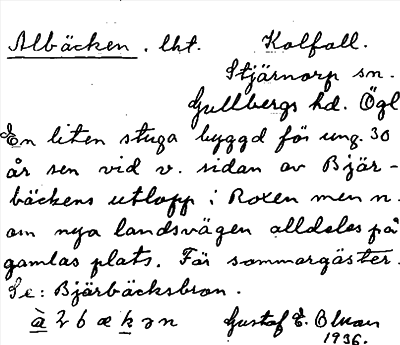 Albäcken. lht. Kolfall.
Stjärnorp sn.
Gullbergs hd. Ögl
En liten stuga byggd för ung. 30
år sen vid v. sidan av Bjär-
bäckens utlopp i Roxen men n.
om nya landsvägen alldeles på
gamlas plats. För sommargäster.
Se: Bjärbäcksbron.
Gustaf E.
1936.